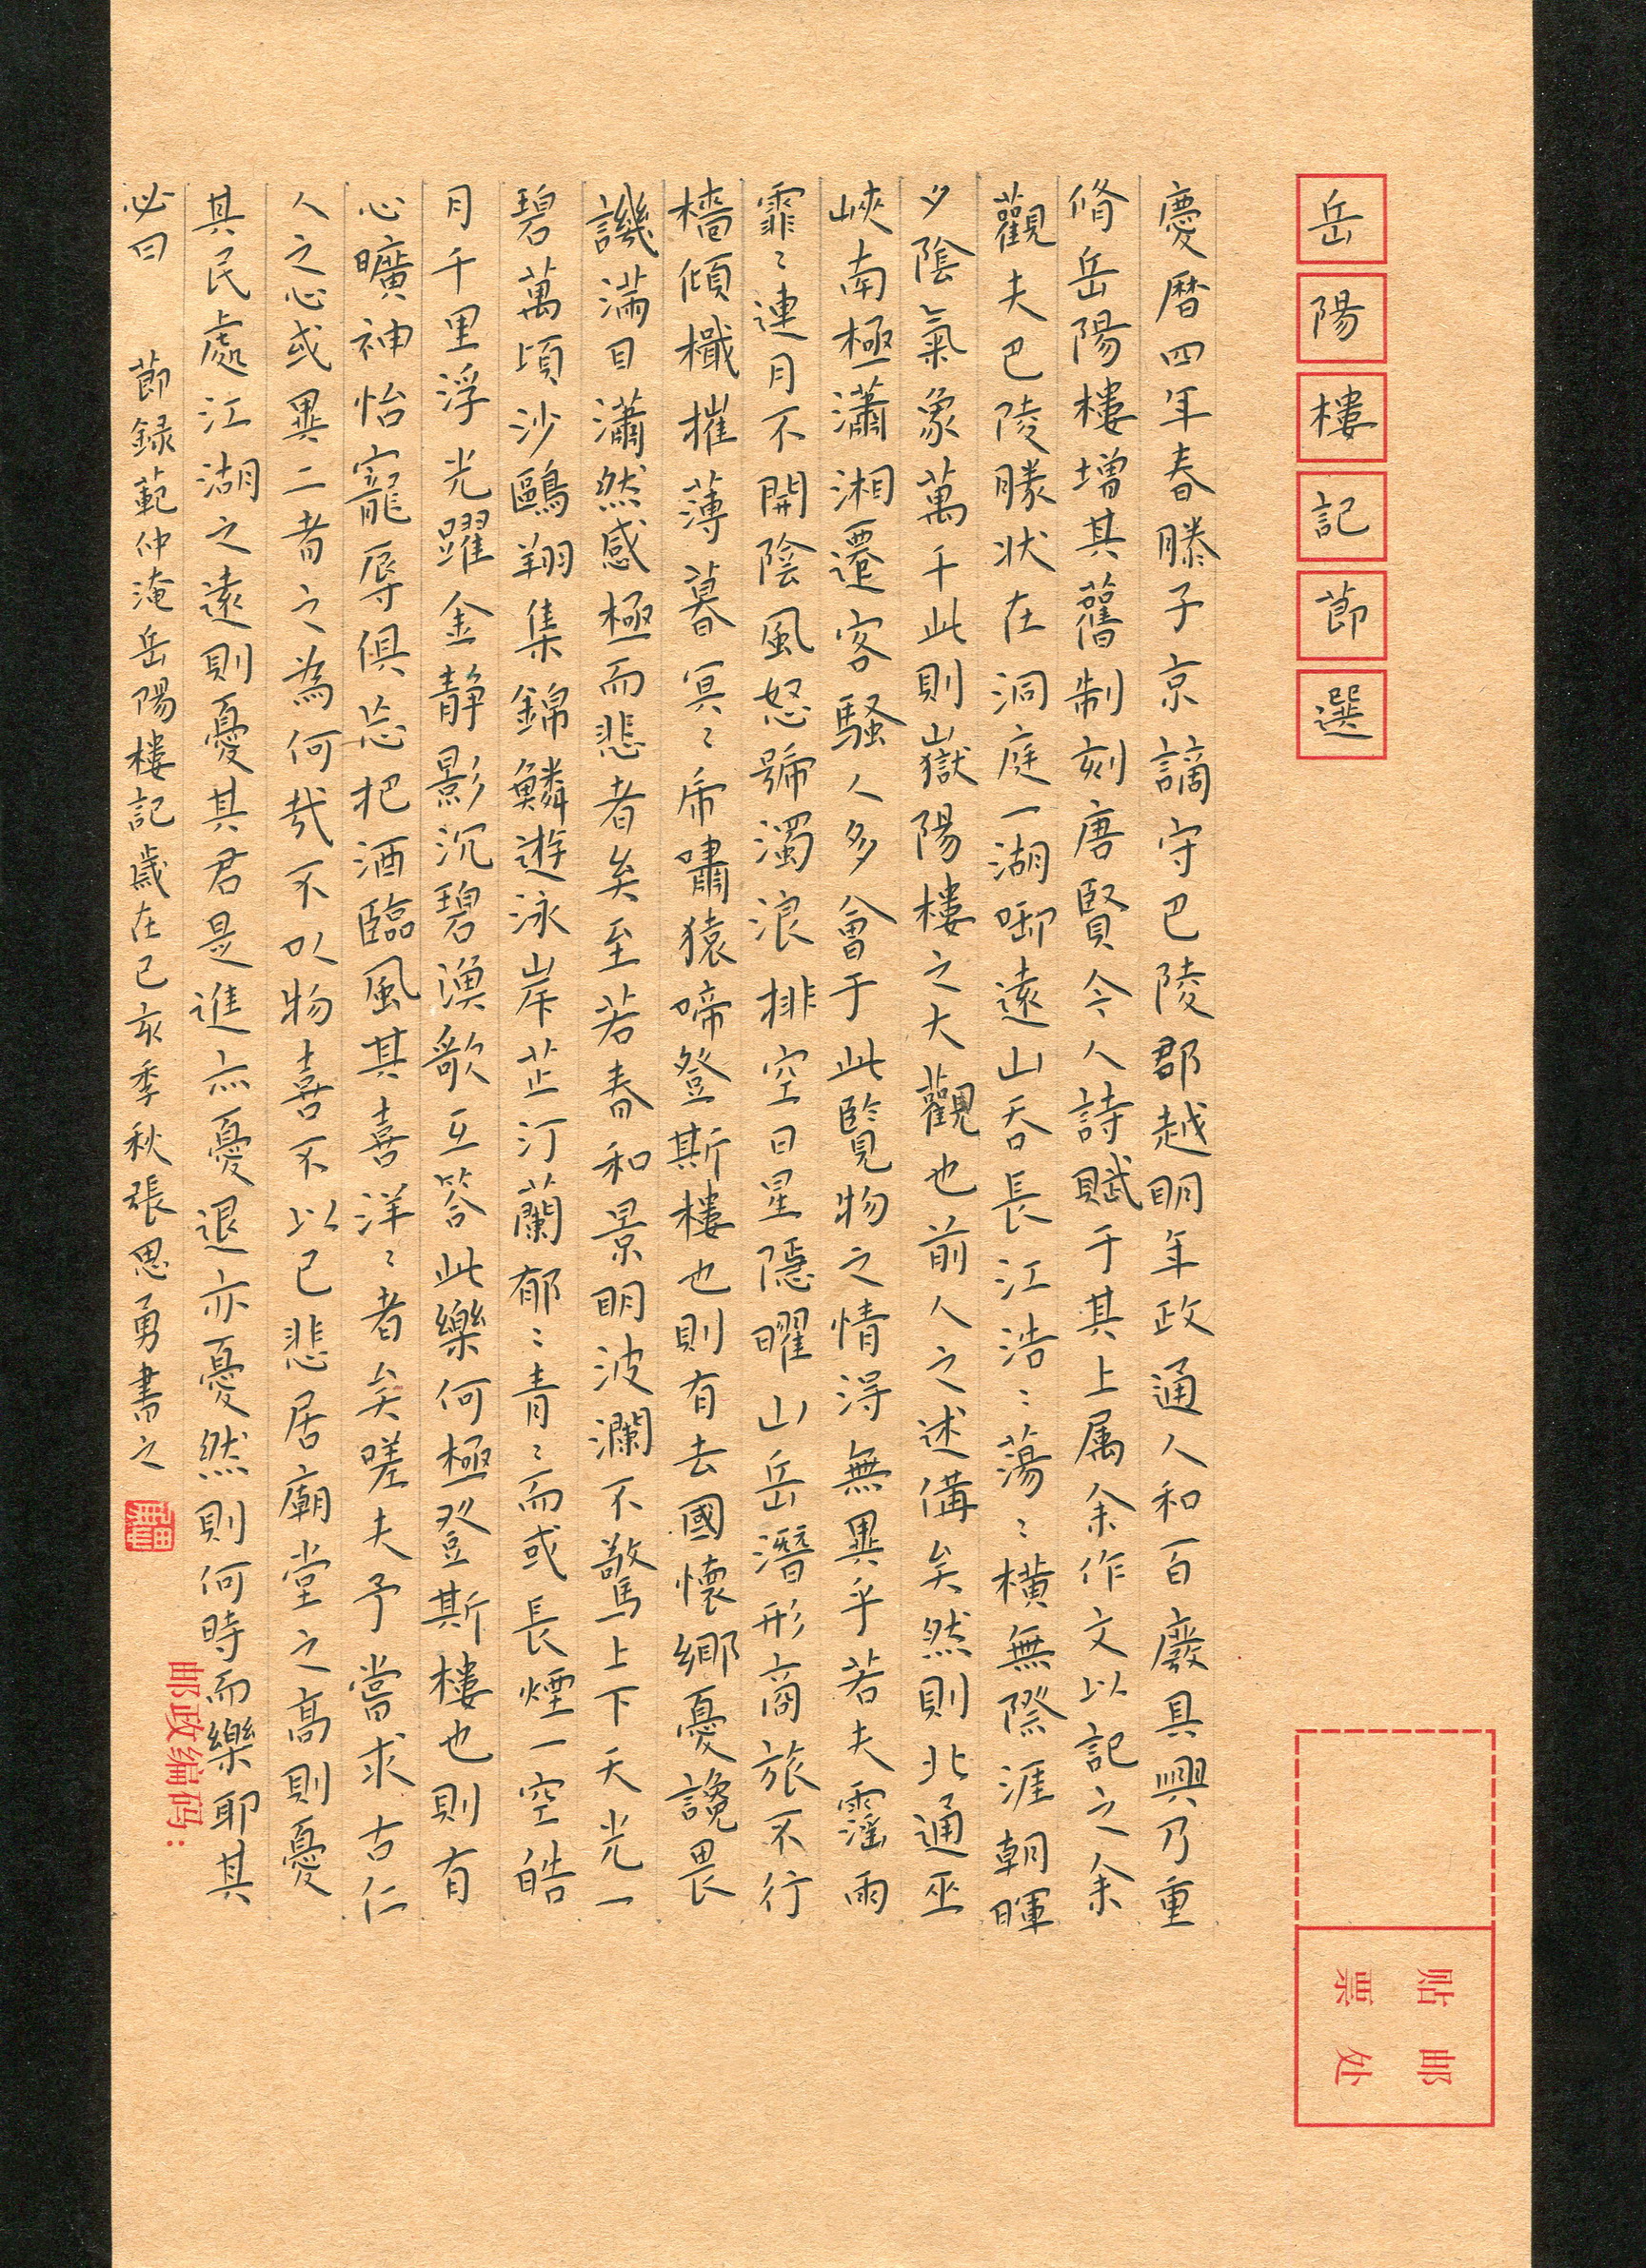 岳陽樓記節選
慶曆四年春滕子京謫守巴陵郡越明年政通人和百廢具興乃重
脩岳陽樓增其舊制刻唐賢今人詩賦于其上属余作文以記之余
觀夫巴陵勝状在洞庭一湖啣遠山吞長江浩〻蕩〻橫無際涯朝暉
夕陰氣象萬千此則嶽陽樓之大觀也前人之述備矣然則北通巫
峽南極瀟湘遷客騷人多會于此覽物之情得無異乎若夫霪雨
霏〻連月不開陰風怒號濁浪排空日星隱曜山岳潛形商旅不行
檣傾檝摧薄暮冥〻虎嘯猿啼登斯樓也則有去國懷鄉憂讒畏
譏滿目瀟然感極而悲者矣至若春和景明波瀾不驚上下天光一
碧萬頃沙鷗翔集錦鱗遊泳岸芷汀蘭郁〻青〻而或長煙一空皓
月千里浮光躍金静影沉碧漁歌互答此樂何極登斯樓也則有
心曠神怡寵辱俱忘把酒臨風其喜洋〻者矣嗟夫予嘗求古仁
人之心或異二者之為何哉不以物喜不以己悲居廟堂之高則憂
其民處江湖之遠則憂其君是進亦憂退亦憂然則何時而樂耶其
必曰
節録範仲淹岳陽樓記歲在己亥季秋張思勇書之
邮政编码:
贴邮
票处